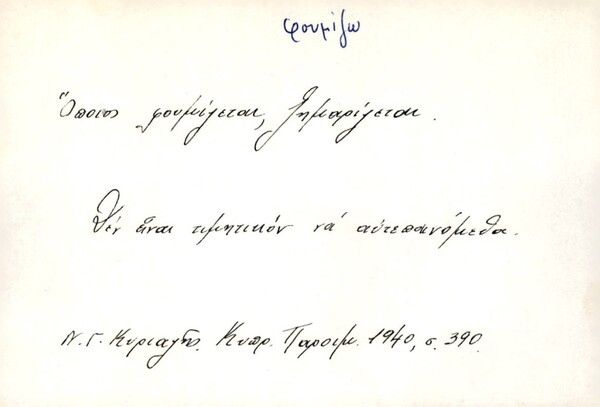 φουμίζω
Ὅποιος φουμίζεται, ζημαρίζεται.
Δέν εἶναι τιμητικόν νά αὐτεπαινόμεθα.
Ν. Γ. Κυριαζῆς. Κυπρ. Παροιμ. 1940, σ. 390.